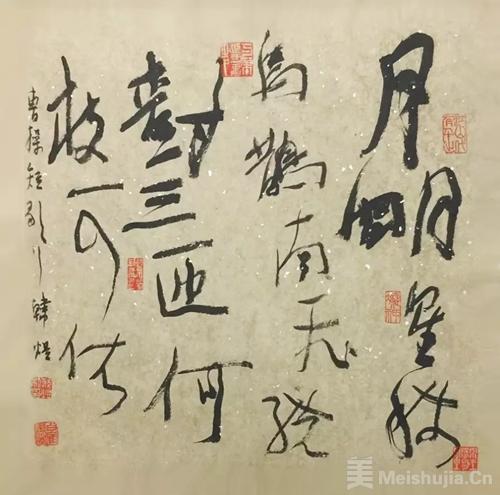 月明星稀
烏鵲南飛繞
樹三匝何
枝可依
曹操短歌行 韓
美 Meishujia.Cn